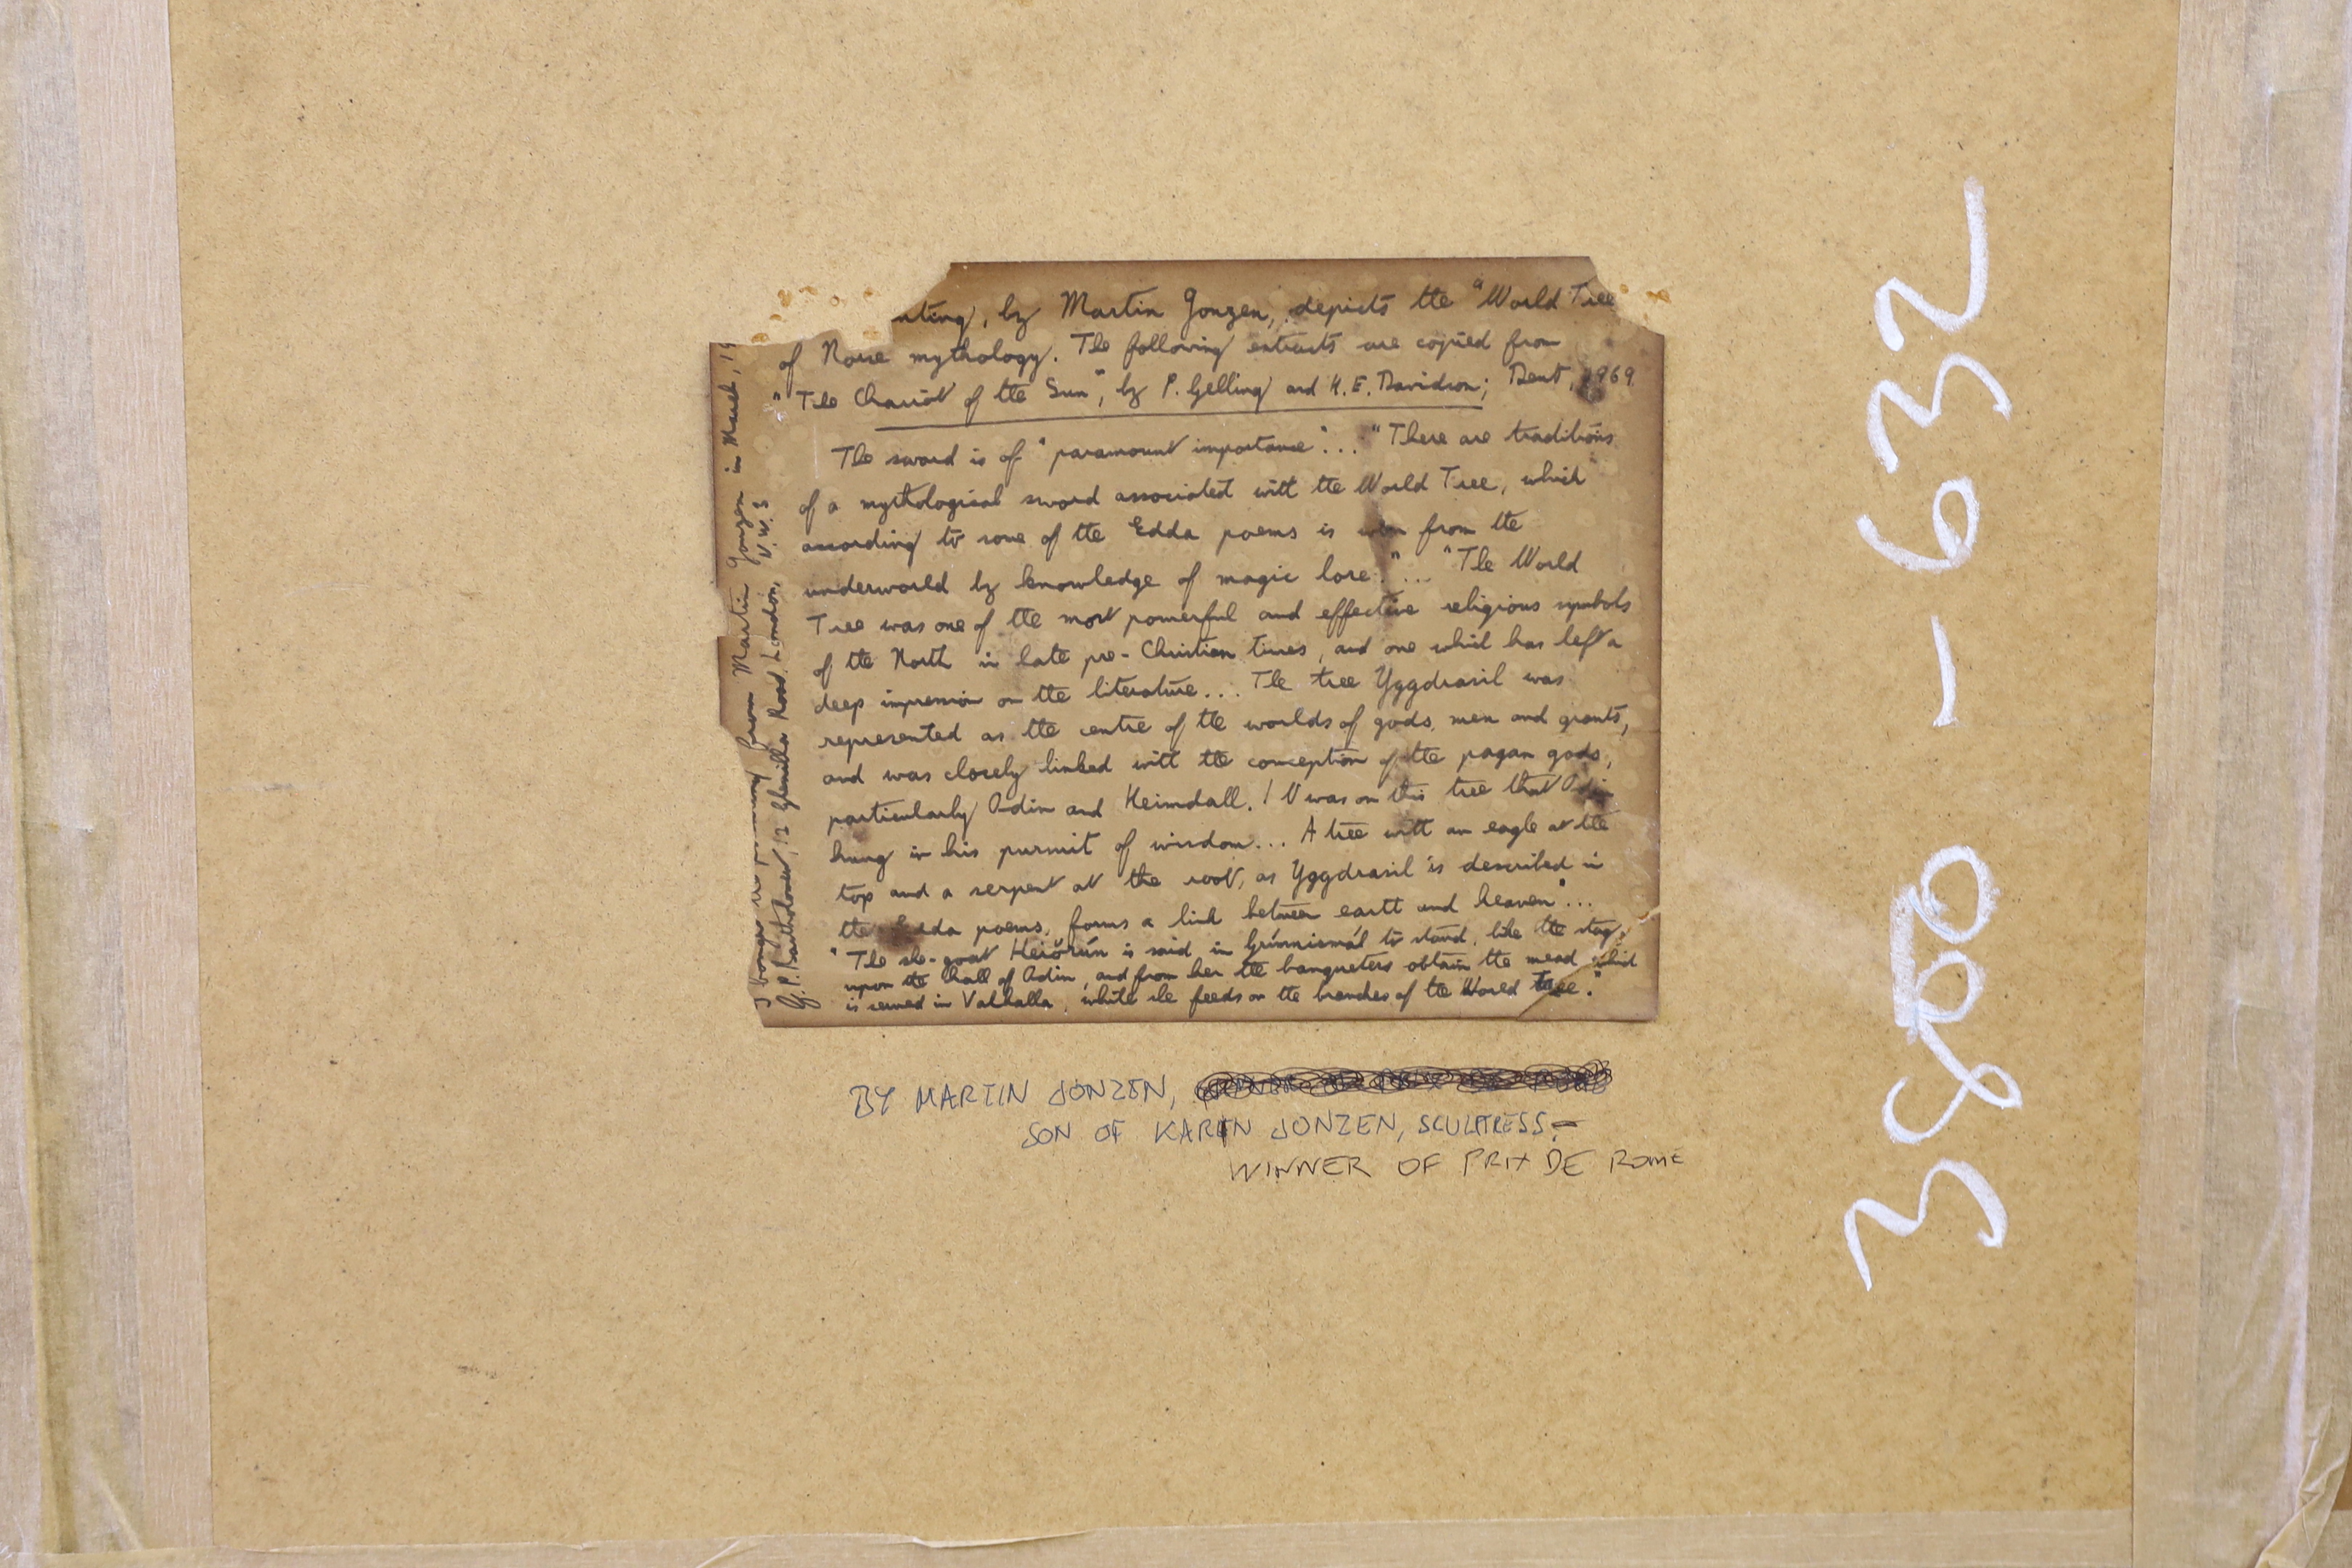 nting, by Martin Jonzen, depicts the "World Tree
of Norse mythology. The following extracts are copied from
"The Chariot of the Sun", by P. Gelling and H.E. Davidson; Dent, 1969.
The sword is of "paramount importance"... "There are traditions
of a mythological sword associated with the World Tree, which
according to some of the Edda poems is won from the
underworld by knowledge of magic lore."... "The World
Tree was one of the most powerful and effective religious symbols
of the North in late pre-Christian times, and one which has left a
deep impression on the literature... The tree Yggdrasil was
represented as the centre of the worlds of gods, men and giants,
and was closely linked with the conception of the pagan gods,
particularly Odin and Heimdall. It was on this tree that Odin
hung in his pursuit of wisdom... A tree with an eagle at the
top and a serpent at the root, as Yggdrasil is described in
the Edda poems, forms a link between earth and heaven"...
"The she-goat Heiðrún is said in Grímnismál to stand, like the stag,
upon the hall of Odin, and from her the banqueters obtain the mead which
is served in Valhalla, while she feeds on the branches of the World tree."
I bought the painting from Martin Jonzen in March, 19
G.P. Bartholomew, 12 Glenilla Road, London, N.W.3
BY MARTIN JONZEN,
SON OF KARIN JONZEN, SCULPTRESS -
WINNER OF PRIX DE ROME
3880-632